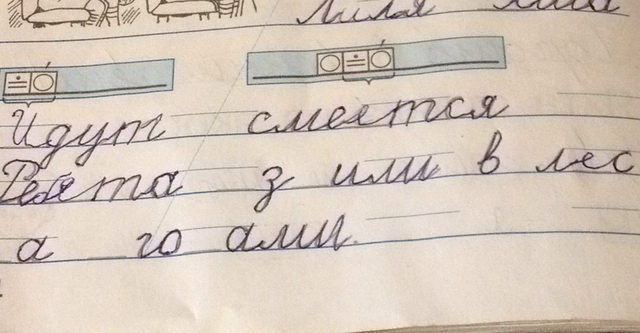 Лиля
Идут смеется
Ребята з или в лес
а го ами.